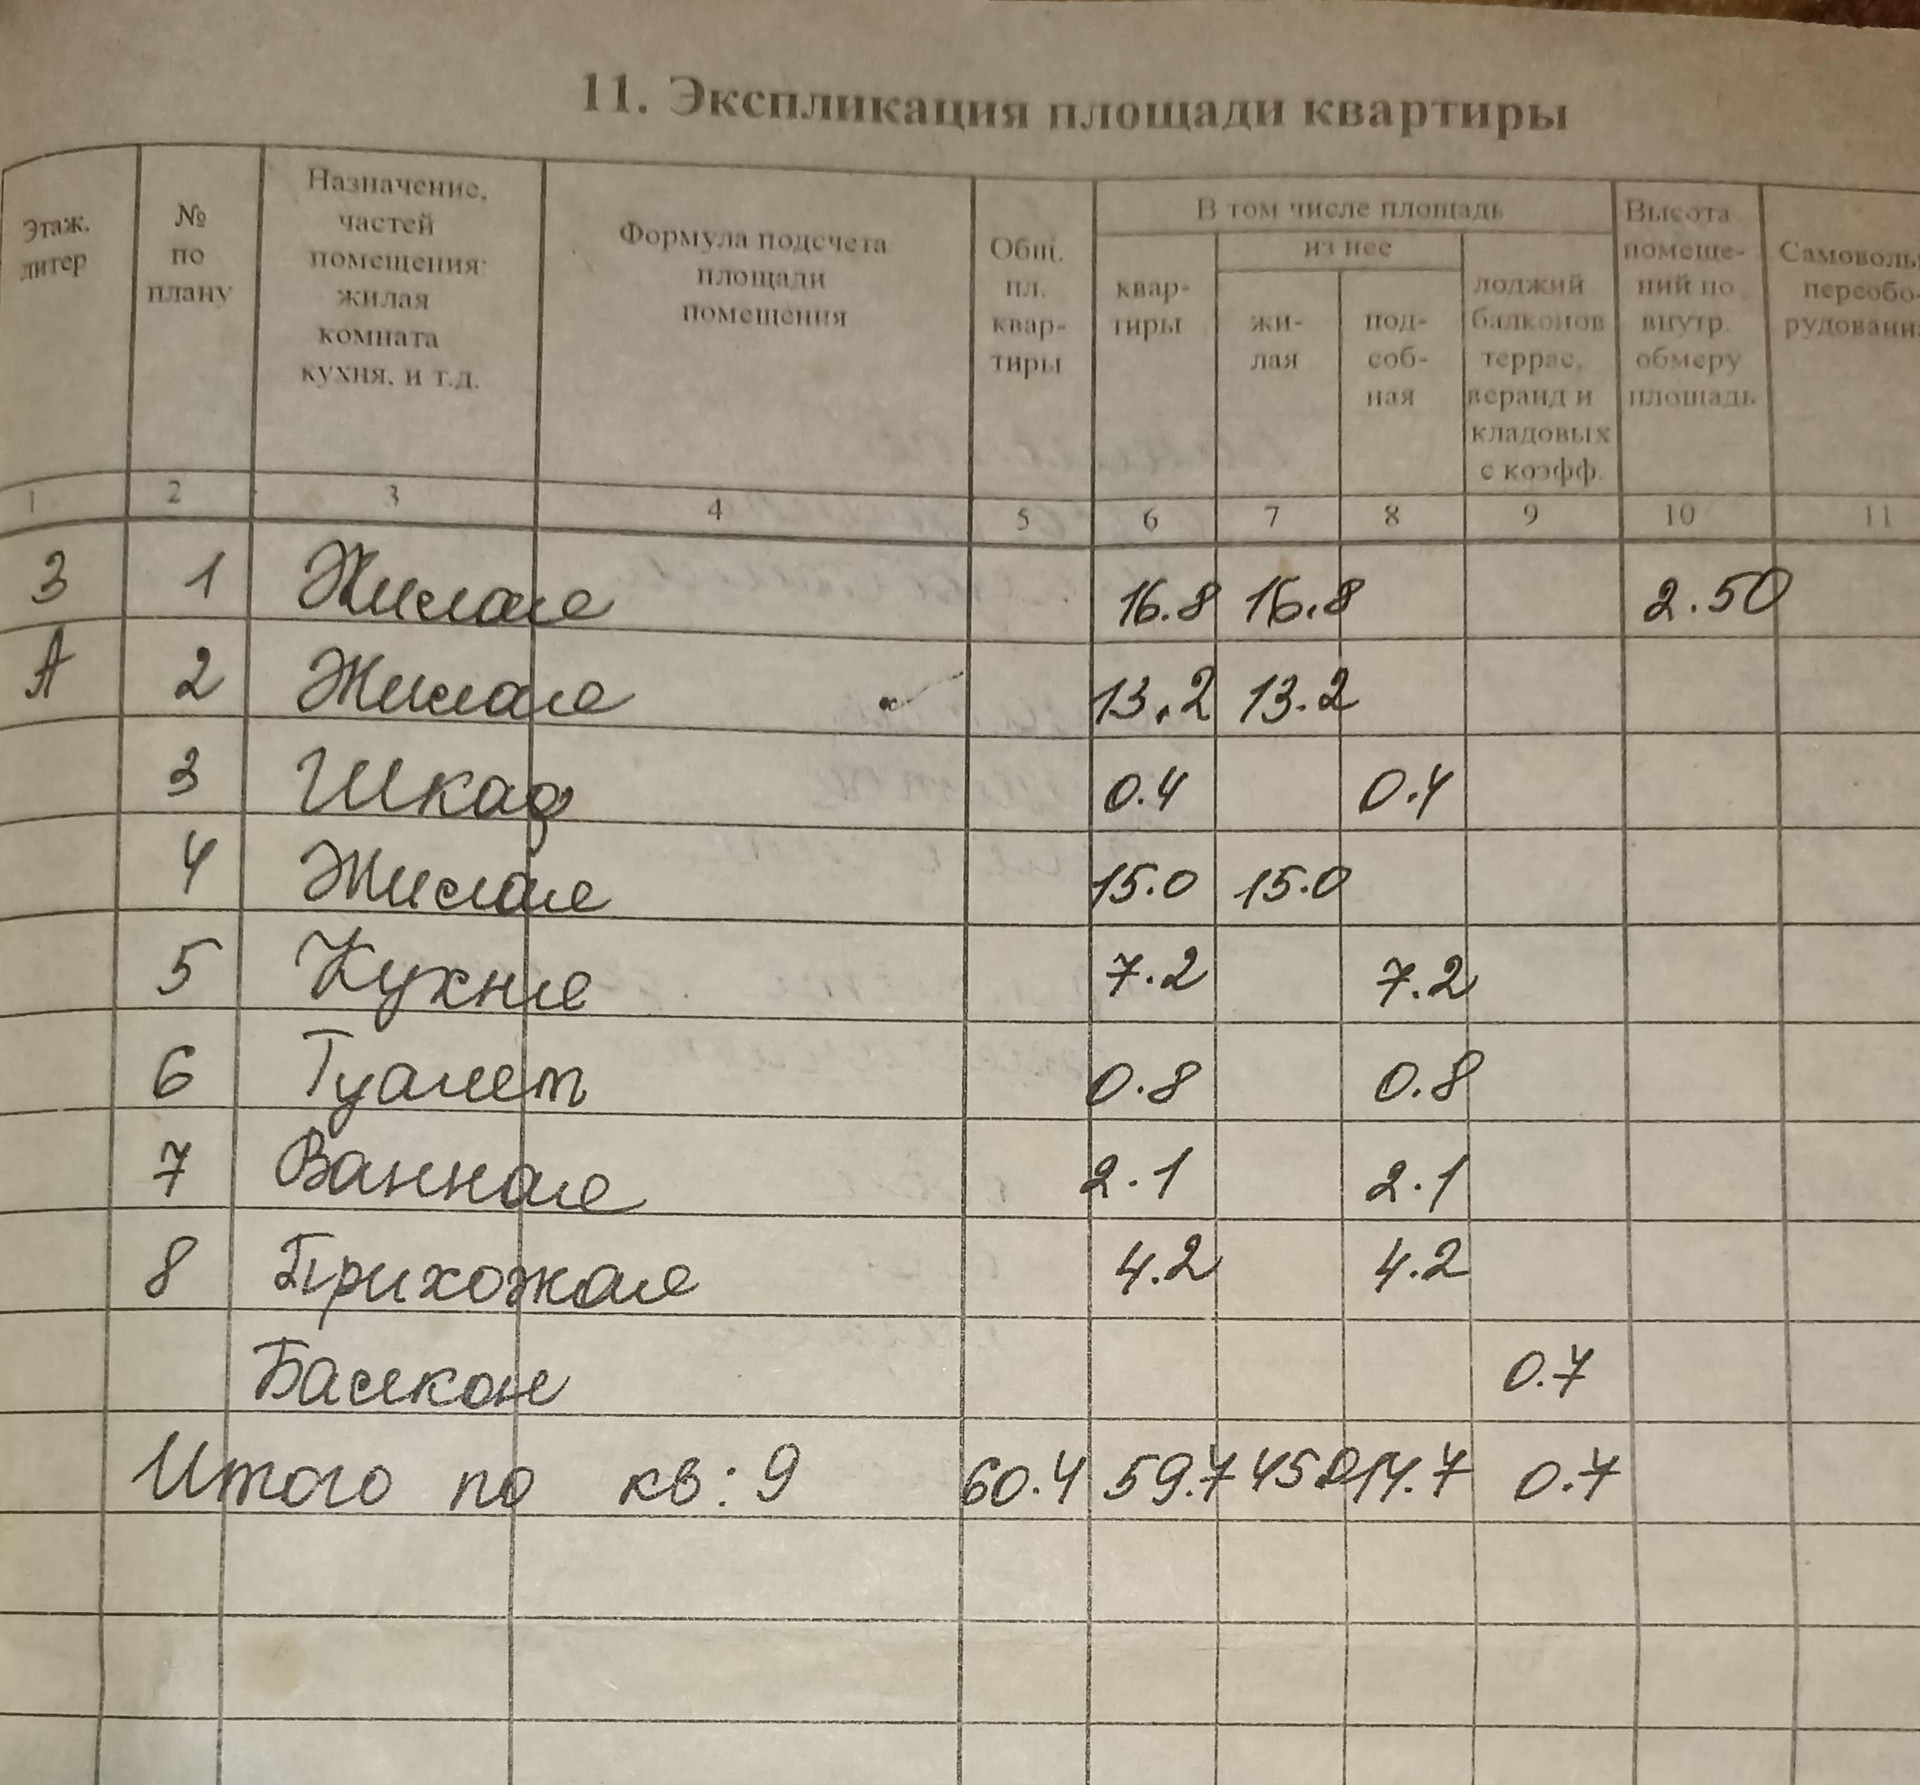 11. Экспликация площади квартиры
Этаж. литер | № по плану | Назначение, частей помещения: жилая комната кухня, и т.д. | Формула подсчета площади помещения | Общ. пл. квар- тиры | В том числе площадь | Высота помеще- ний по внутр. обмеру площадь | Самоволь переобо- рудовани
квар- тиры | из нее | жи- лая | под- соб- ная | лоджий балконов террас, веранд и кладовых с коэфф.
1 2 3 4 5 6 7 8 9 10 11
3 1 Жилая 16.8 16.8 2.50
А 2 Жилая 13.2 13.2
3 Шкаф 0.4 0.4
4 Жилая 15.0 15.0
5 Кухня 7.2 7.2
6 Туалет 0.8 0.8
7 Ванная 2.1 2.1
8 Прихожая 4.2 4.2
Балкон 0.7
Итого по кв: 9 60.4 59.7 45.0 14.7 0.7